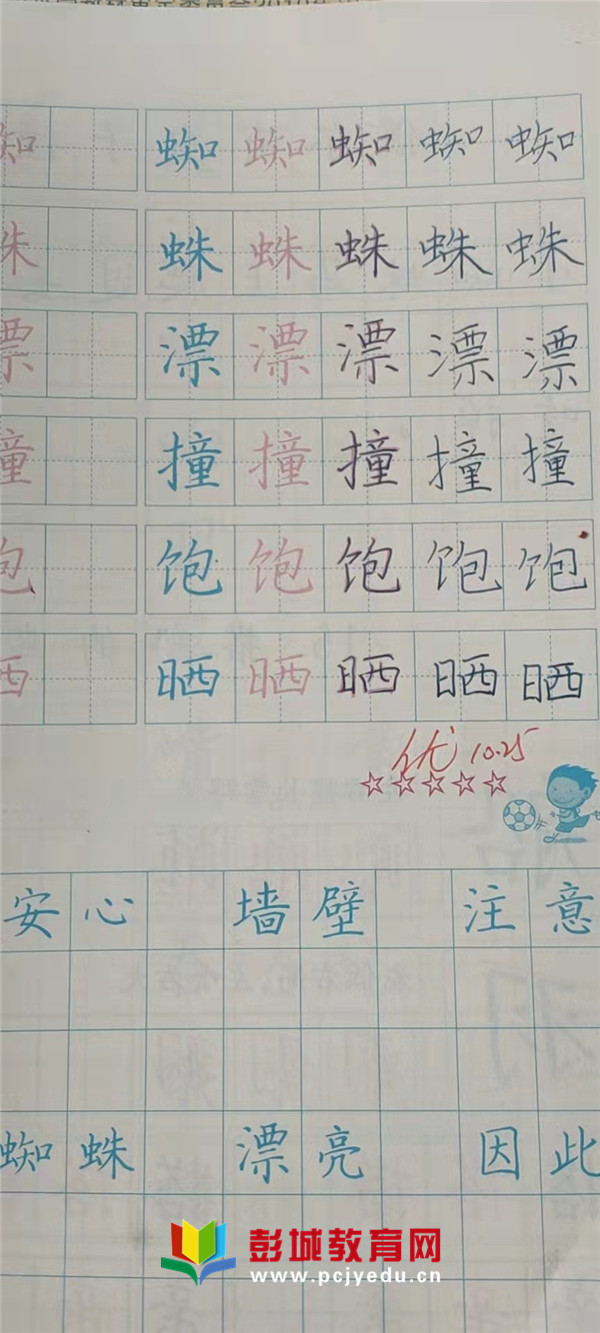 知 蜘 蜘 蜘 蜘 蜘
朱 蛛 蛛 蛛 蛛 蛛
票 漂 漂 漂 漂 漂
童 撞 撞 撞 撞 撞
包 饱 饱 饱 饱 饱
西 晒 晒 晒 晒 晒
优 10.25
☆☆☆☆☆
安心 墙壁 注意
蜘蛛 漂亮 因此
彭城教育网
www.pcjyedu.cn